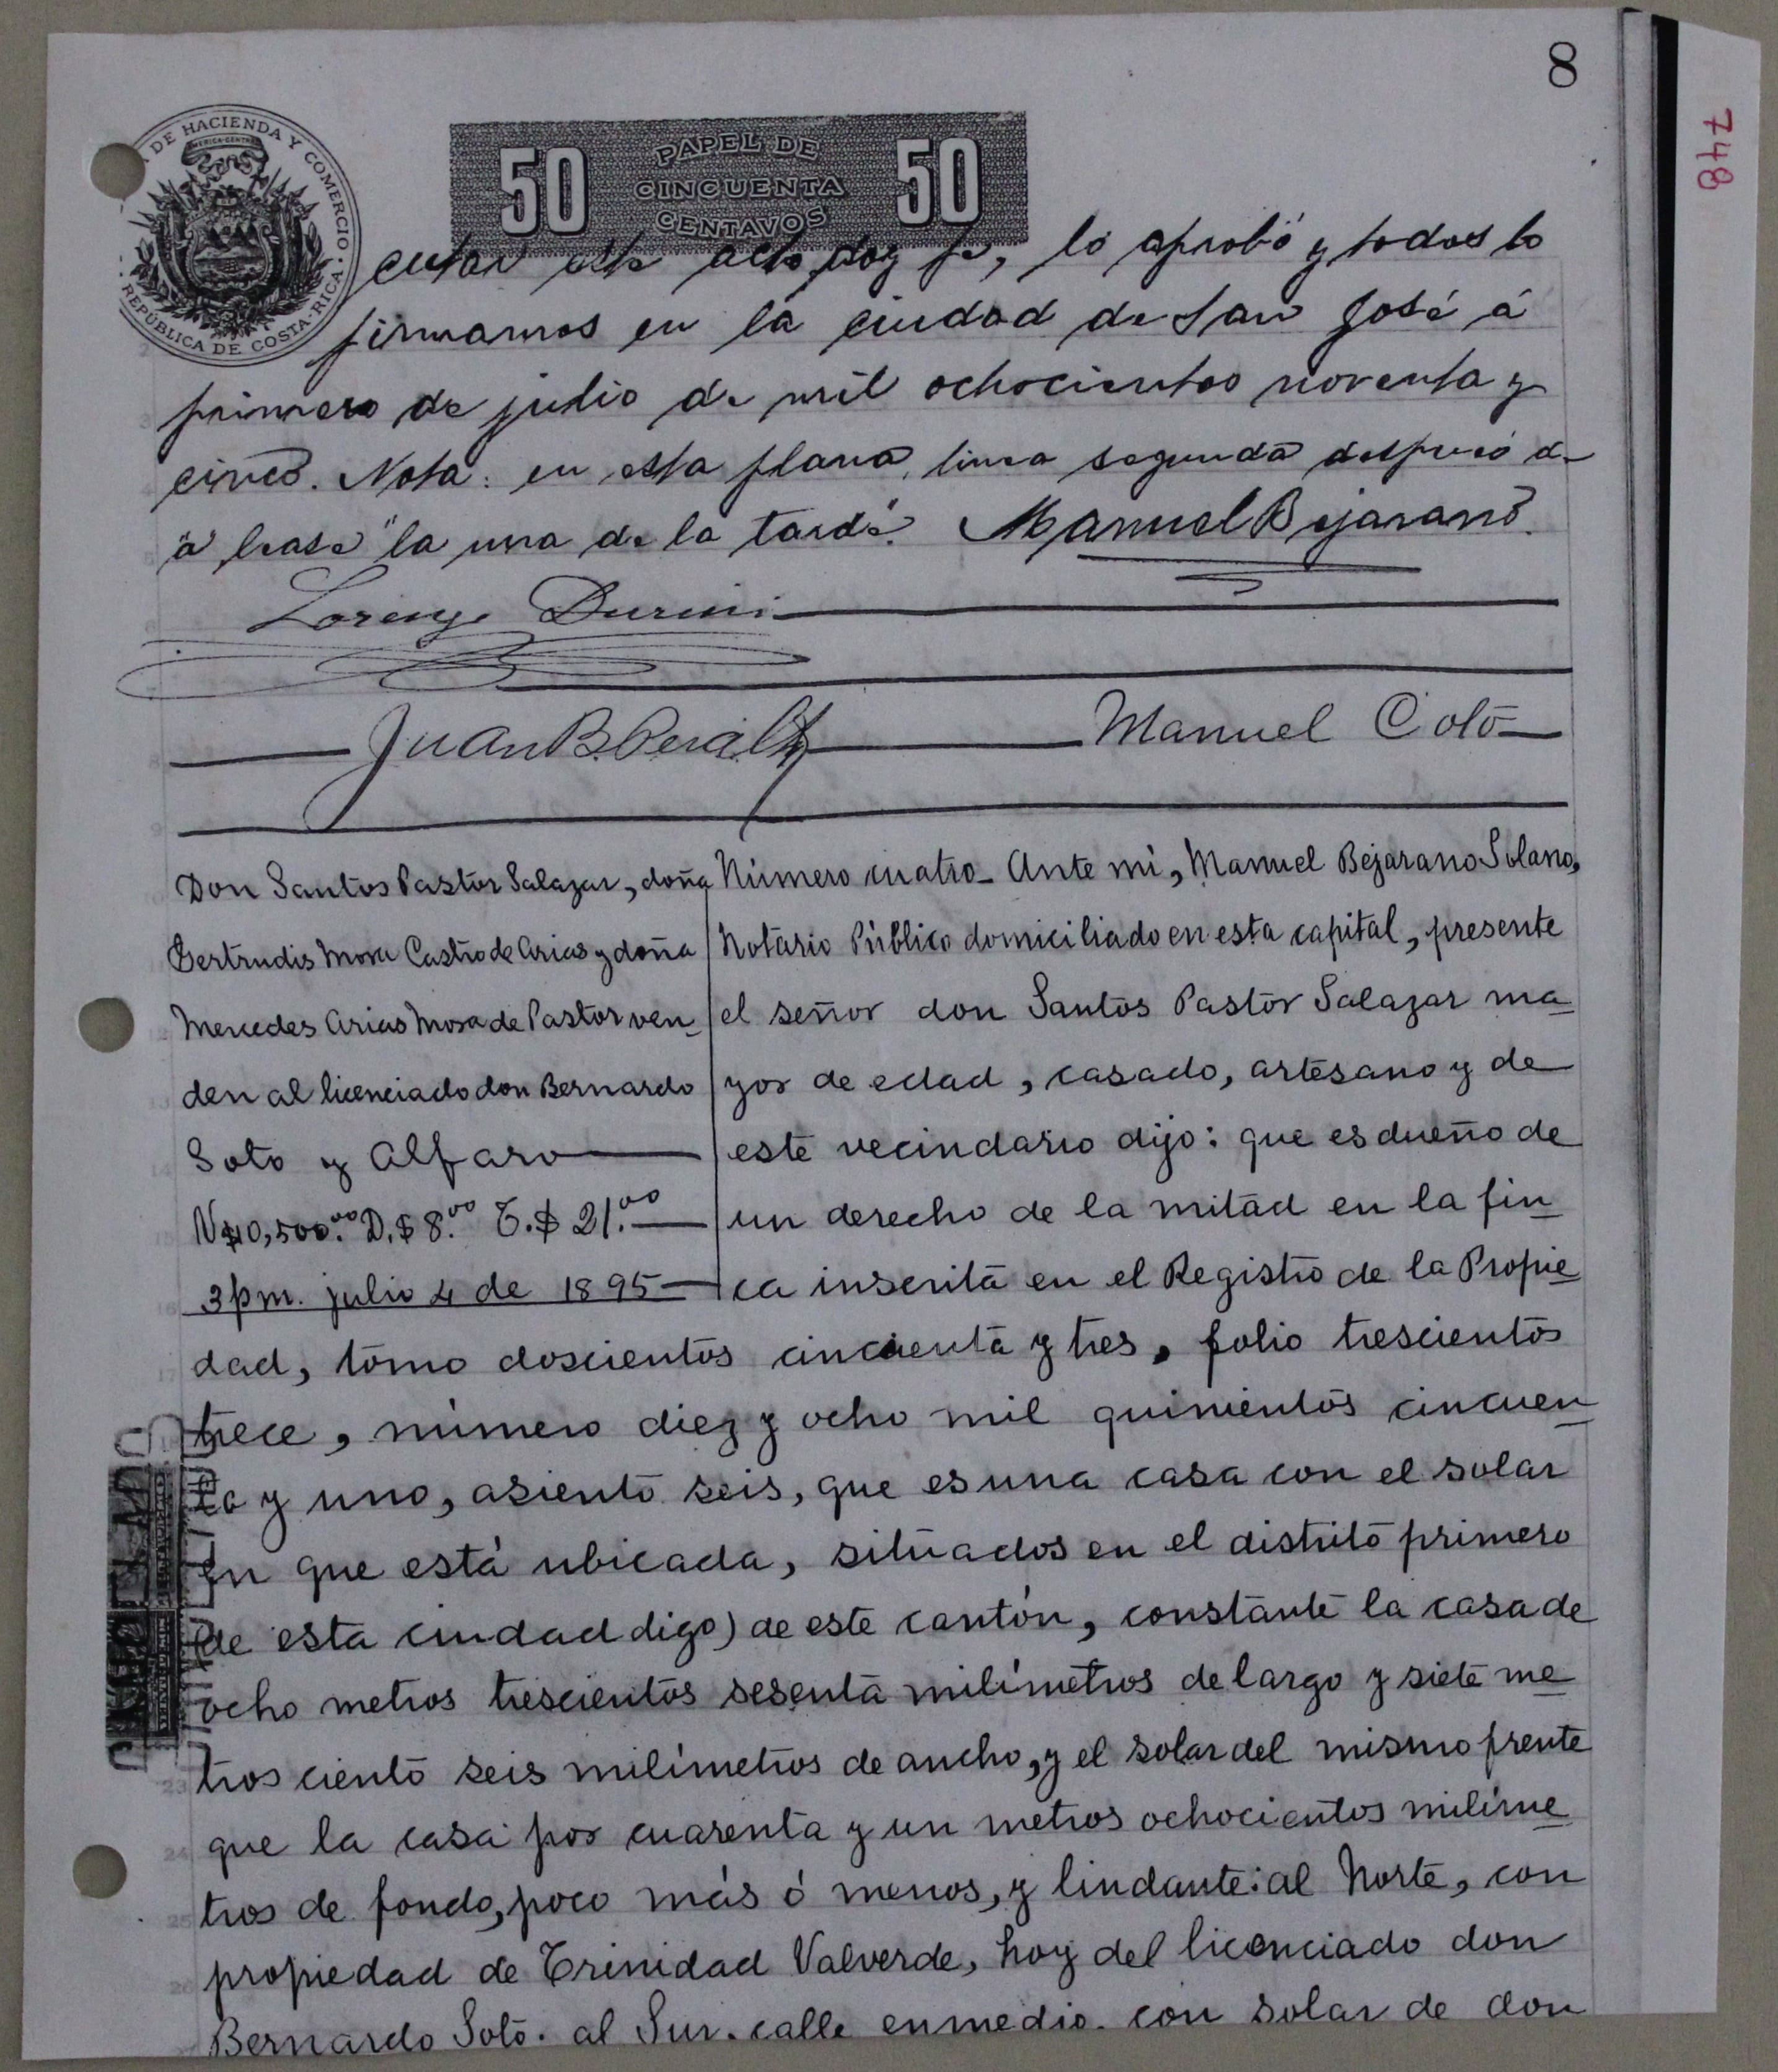 8
748
DE HACIENDA Y COMERCIO
AMERICA CENTRAL
REPÚBLICA DE COSTA RICA
50 PAPEL DE CINCUENTA CENTAVOS 50
este acto doy fe, lo aprobó y todos lo
firmamos en la ciudad de San José á
primero de julio de mil ochocientos noventa y
cinco. Nota: en esta plana, linea segunda después de
"á" lease "la una de la tarde". Manuel Bejarano.
Lorenzo Durini
Juan B. Peralta Manuel Coto
Don Santos Pastor Salazar, doña
Gertrudis Mora Castro de Arias y doña
Mercedes Arias Mora de Pastor ven-
den al licenciado don Bernardo
Soto y Alfaro
V$10,500.00 D.$8.00 T.$21.00
3 pm. julio 4 de 1895
Número cuatro- Ante mi, Manuel Bejarano Solano,
Notario Público domiciliado en esta capital, presente
el señor don Santos Pastor Salazar ma-
yor de edad, casado, artesano y de
este vecindario dijo: que es dueño de
un derecho de la mitad en la fin-
ca inscrita en el Registro de la Propie-
dad, tomo doscientos cincuenta y tres, folio trescientos
trece, número diez y ocho mil quinientos cincuen-
ta y uno, asiento seis, que es una casa con el solar
en que está ubicada, situados en el distrito primero
(de esta ciudad digo) de este cantón, constante la casa de
ocho metros trescientos sesenta milímetros de largo y siete me-
tros ciento seis milímetros de ancho, y el solar del mismo frente
que la casa por cuarenta y un metros ochocientos milíme-
tros de fondo, poco más ó menos, y lindante: al Norte, con
propiedad de Trinidad Valverde, hoy del licenciado don
Bernardo Soto. al Sur. calle enmedio. con solar de don